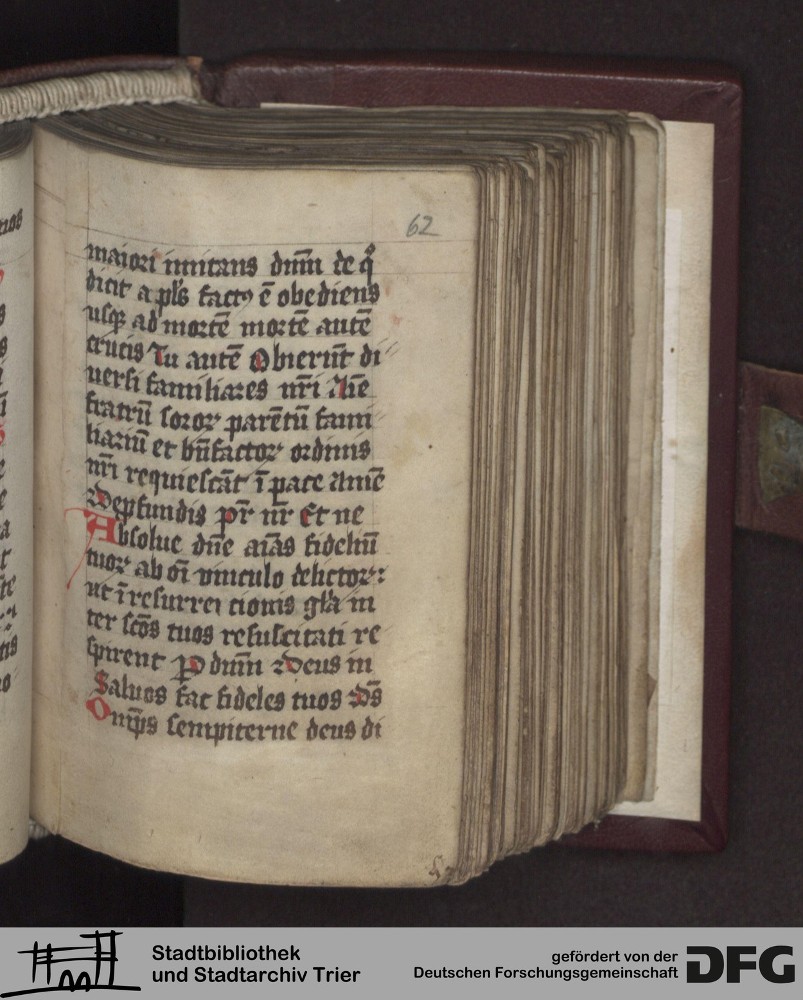 62
maiori imitans dn̄m de qͦ
dicit apl̄s factꝯ ē obediens
usqꝫ ad mortē mortē autē
crucis Tu autē Obierūt di
uersi familiares nr̄i Aīe
fratrū soroꝝ parētū fami
liariū et bn̄factoꝝ ordinis
nr̄i requiescāt ī pace Amē
Depfundis pr̄ nr̄ Et ne
Absolue dn̄e aīas fideliū
tuoꝝ ab oī vinculo delictoꝝ:
ut ī resurrectionis gl̄a in
ter scōs tuos resuscitati re
spirent P dn̄m Deus in
Saluos fac fideles tuos Ds̄
Omp̄s sempiterne deus di
Stadtbibliothek
und Stadtarchiv Trier
gefördert von der
Deutschen Forschungsgemeinschaft
DFG